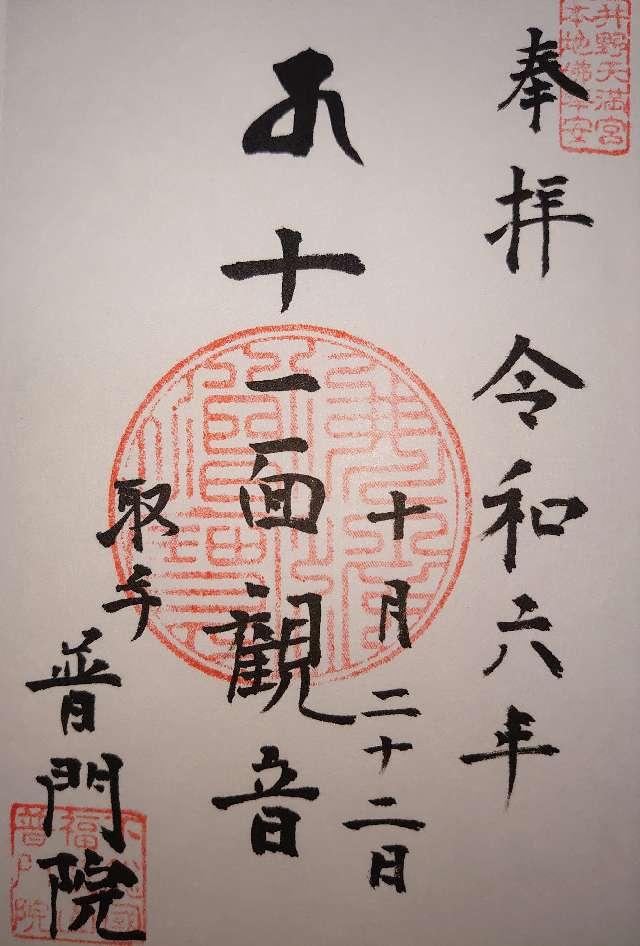 井野天満宮
本地佛奉安
奉拝 令和六年
十月二十二日
十一面觀音
取手
普門院
普門院